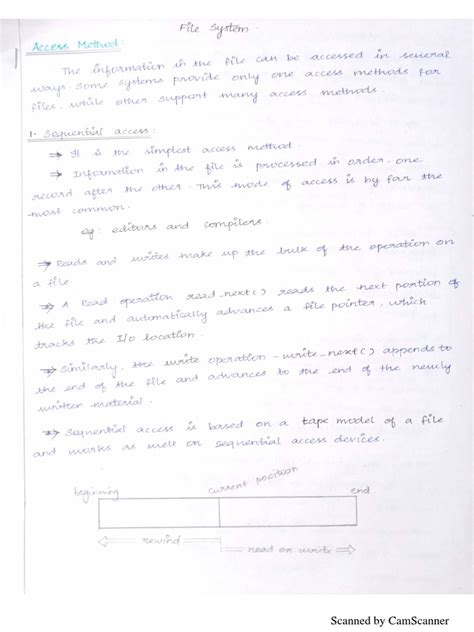 File System.
Access Method:
The information in the file can be accessed in several
ways. Some systems provide only one access methods for
files, while other support many access methods
1. Sequential access:
⇒ It is the simplest access method.
⇒ Information in the file is processed in order, one
record after the other. This mode of access is by far the
most common.
eg: editors and compilers.
⇒ Reads and writes make up the bulk of the operation on
a file
⇒ A Read operation read_next() reads the next portion of
the file and automatically advances a file pointer, which
tracks the I/O location.
⇒ Similarly, the write operation - write_next() appends to
the end of the file and advances to the end of the newly
written material.
⇒ Sequential access is based on a tape model of a file
and works as well on sequential access devices.
beginning current position end
⇐ rewind
read or write ⇒
Scanned by CamScanner